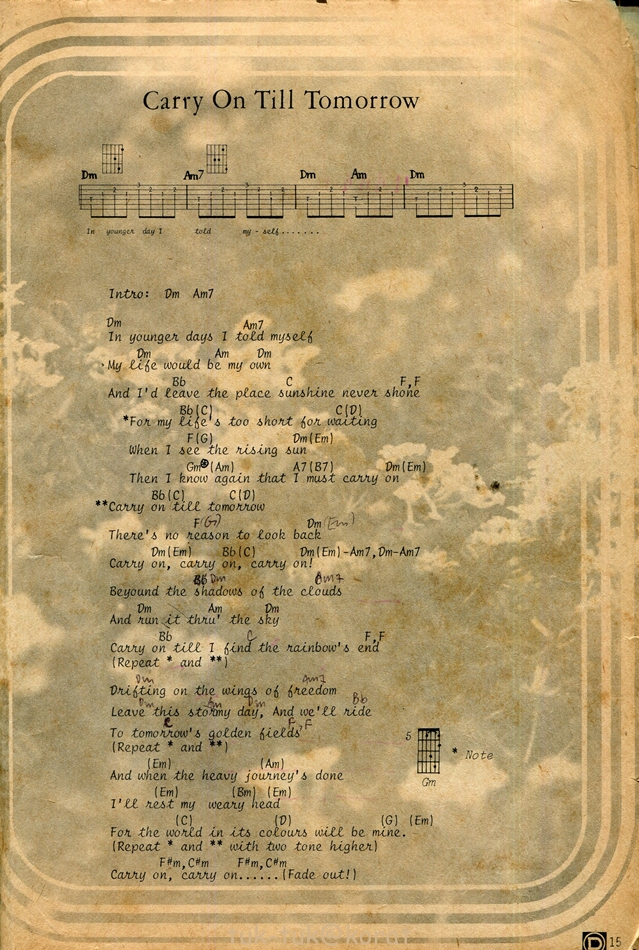 Carry On Till Tomorrow
Dm Am7 Dm Am Dm
In younger day I told my - self.......
Intro: Dm Am7
Dm Am7
In younger days I told myself
Dm Am Dm
My life would be my own
Bb C F,F
And I'd leave the place sunshine never shone
Bb(C) C(D)
*For my life's too short for waiting
F(G) Dm(Em)
When I see the rising sun
Gm (Am) A7(B7) Dm(Em)
Then I know again that I must carry on
Bb(C) C(D)
**Carry on till tomorrow
F(G) Dm(Em)
There's no reason to look back
Dm(Em) Bb(C) Dm(Em)-Am7,Dm-Am7
Carry on, carry on, carry on!
Dm Am7
Beyound the shadows of the clouds
Dm Am Dm
And run it thru' the sky
Bb C F,F
Carry on till I find the rainbow's end
(Repeat * and **)
Dm Am7
Drifting on the wings of freedom
Dm Am Dm Bb
Leave this stormy day, And we'll ride
C F,F
To tomorrow's golden fields
(Repeat * and **)
5
* Note
Gm
(Em) (Am)
And when the heavy journey's done
(Em) (Bm) (Em)
I'll rest my weary head
(C) (D) (G) (Em)
For the world in its colours will be mine.
(Repeat * and ** with two tone higher)
F#m,C#m F#m,C#m
Carry on, carry on......(Fade out!)
15